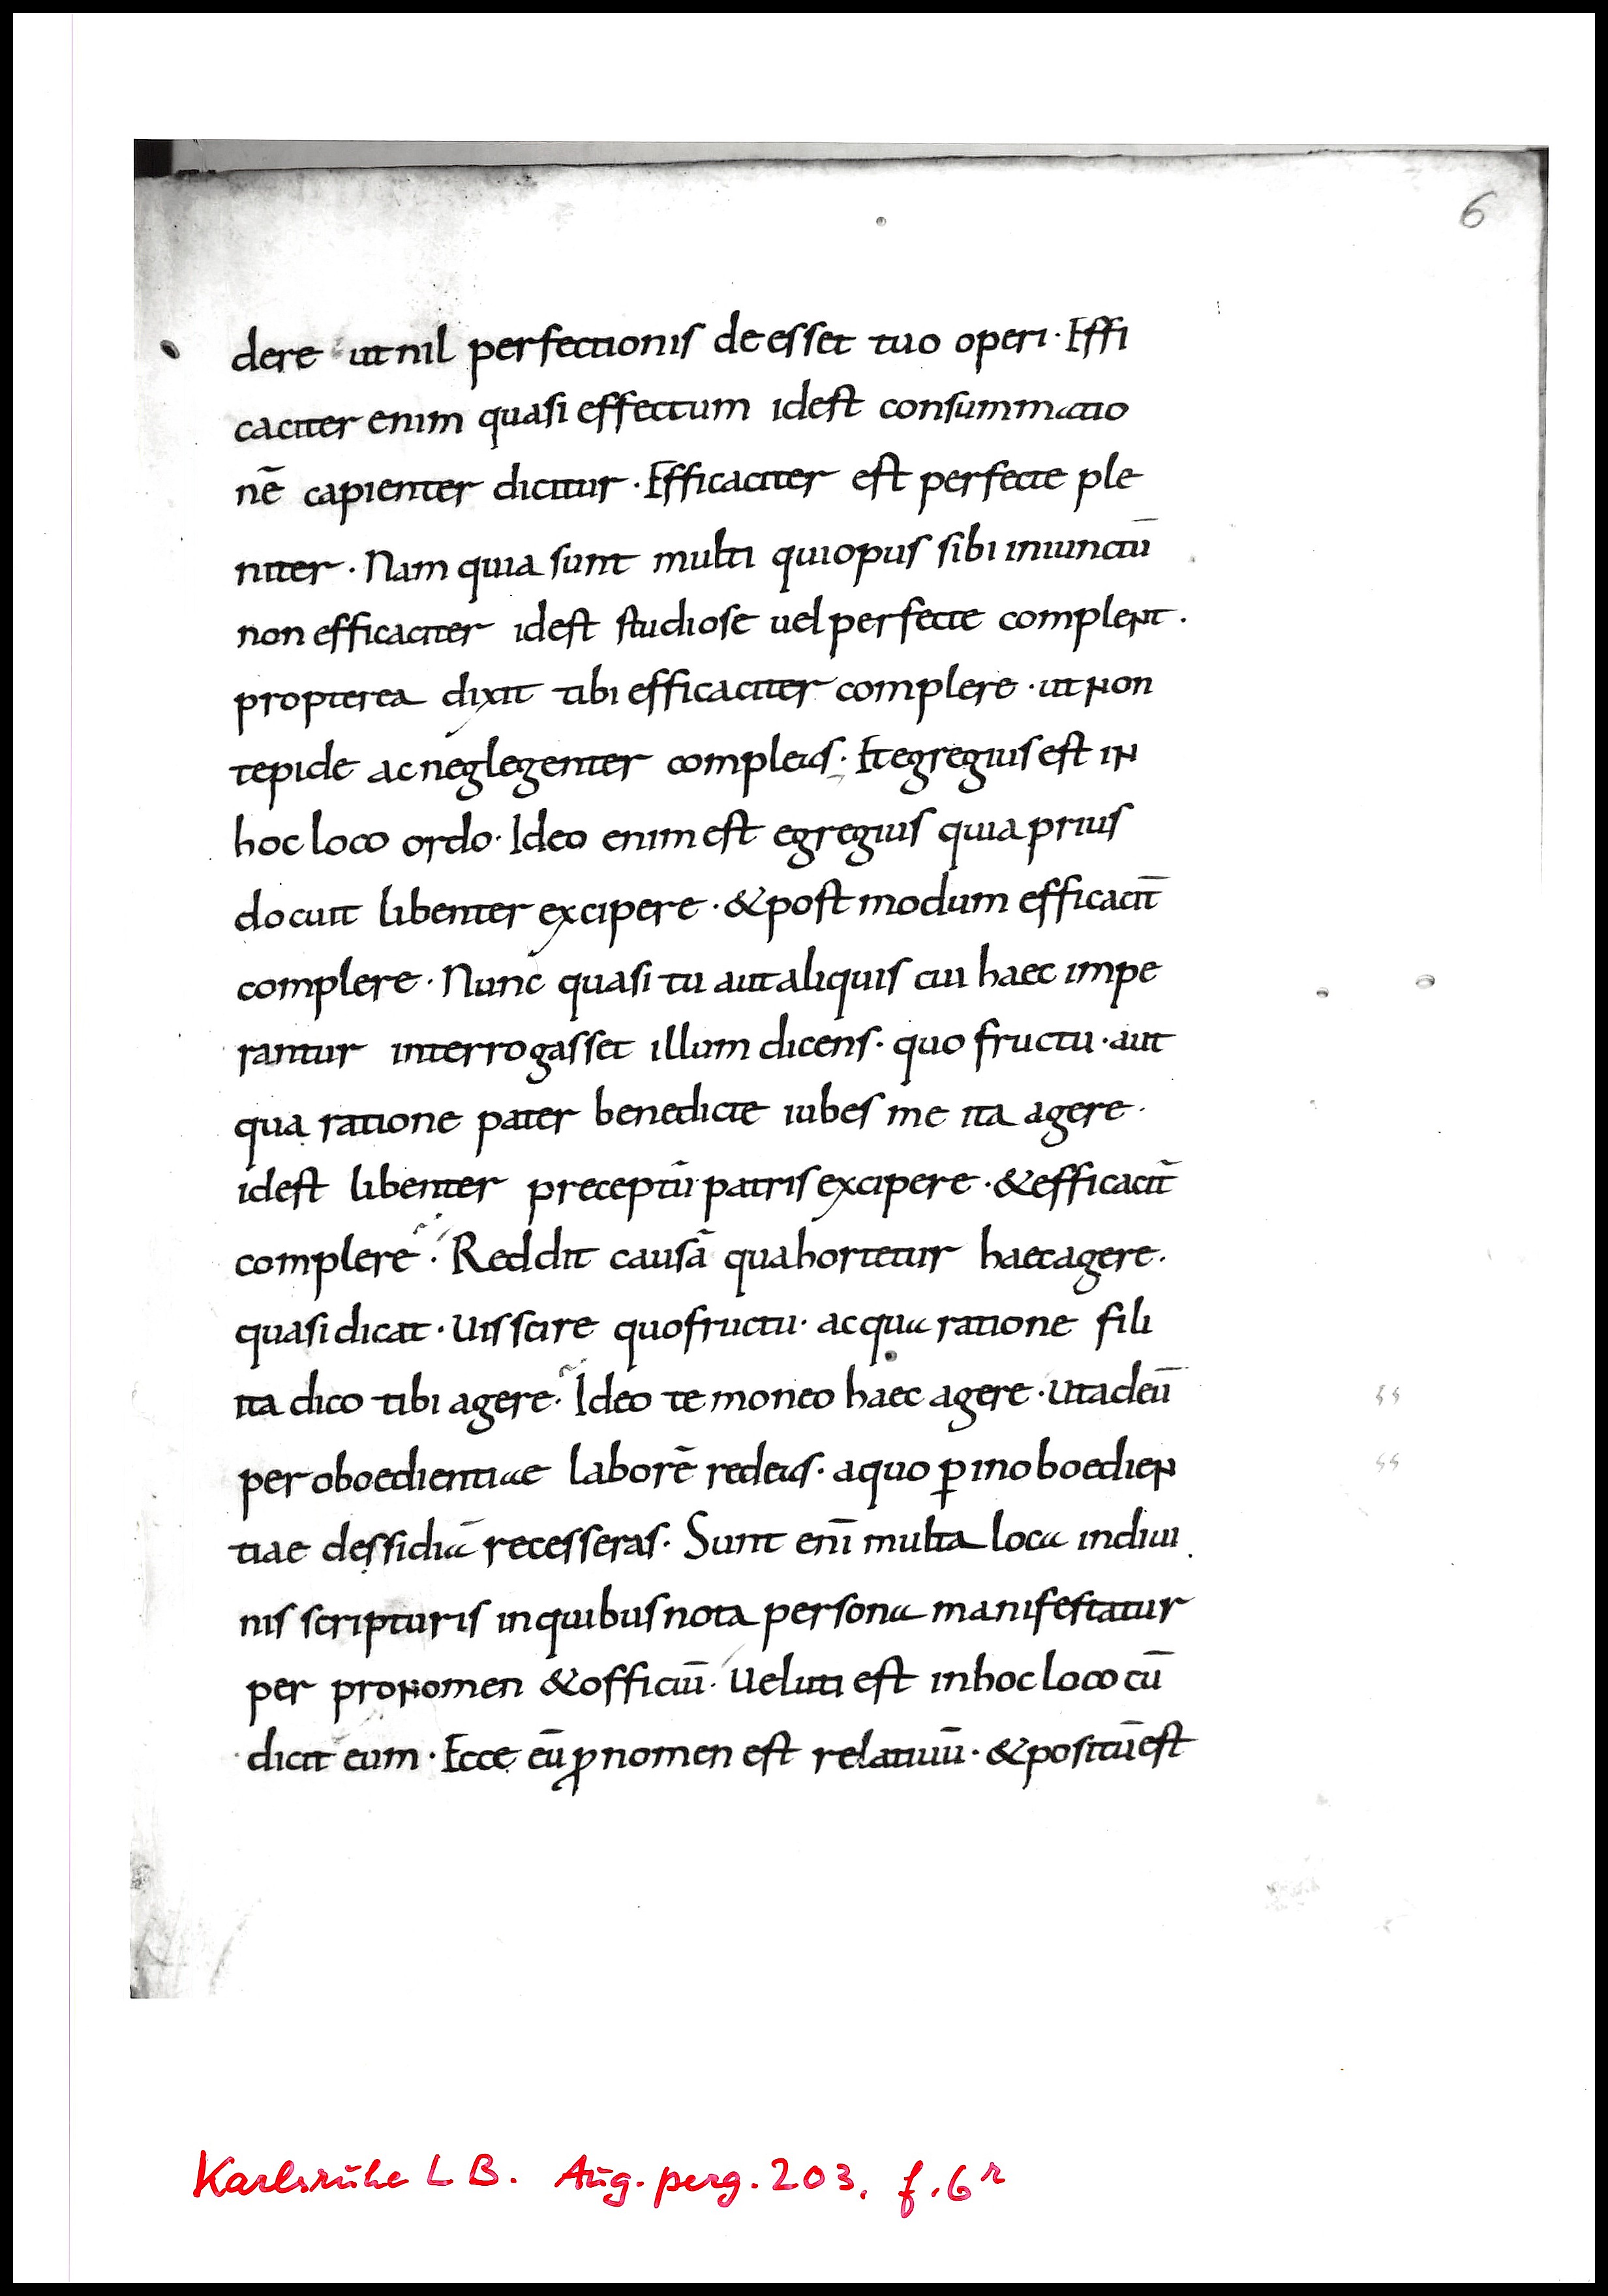 6
dere ut nil perfectionis deesset tuo operi · Effi
caciter enim quasi effectum idest consummatio
nē capienter dicitur · Efficaciter est perfecte ple
niter · Nam quia sunt multi qui opus sibi iniunctū
non efficaciter idest studiose uel perfecte complent ·
propterea dixit tibi efficaciter complere · ut non
tepide ac neglegenter compleas · Et egregius est in
hoc loco ordo · Ideo enim est egregius quia prius
docuit libenter excipere · & postmodum efficacit̄
complere · Nunc quasi tu aut aliquis cui haec impe
rantur interrogasset illum dicens · quo fructu · aut
qua ratione pater benedicte iubes me ita agere ·
idest libenter preceptū patris excipere · & efficacit̄
complere · Reddit causā qua hortetur haec agere ·
quasi dicat · Uis scire quo fructu · ac qua ratione fili
ita dico tibi agere · Ideo te moneo haec agere · Ut ad eū
per oboedientiae laborē redeas · a quo ꝑ inoboedien
tiae dessidiā recesseras · Sunt enī multa loca in diui
nis scripturis in quibus nota persona manifestatur
per pronomen & officiū · Ueluti est in hoc loco cū
dicit eum · Ecce eū ꝓnomen est relatiuū · & positū est
Karlsruhe L B. Aug. perg. 203, f. 6r